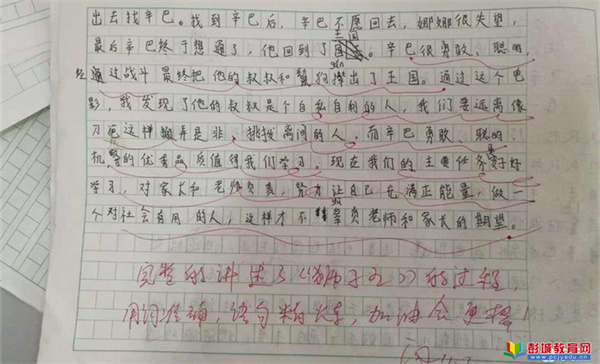 出去找辛巴。找到辛巴后，辛巴不愿回去，娜娜很失望，
最后辛巴终于想通了，他回到了王国。辛巴很勇敢、聪明，
经过战斗最终把他的叔叔和鬣狗撵出了王国。通过这个电
影，我发现了他的叔叔是个自私自利的人，我们要远离像
刀疤这样搬弄是非、挑拨离间的人，而辛巴勇敢、聪明
机警的优秀品质值得我们学习。现在我们的主要任务是好好
学习，对家长和老师负责，努力让自己充满正能量，做一
个对社会有用的人，这样才不辜负老师和家长的期望。
完整的讲述了《狮子王》的过程，
用词准确，语句精大，加油会更棒！
彭城教育网
www.pcjyw.com